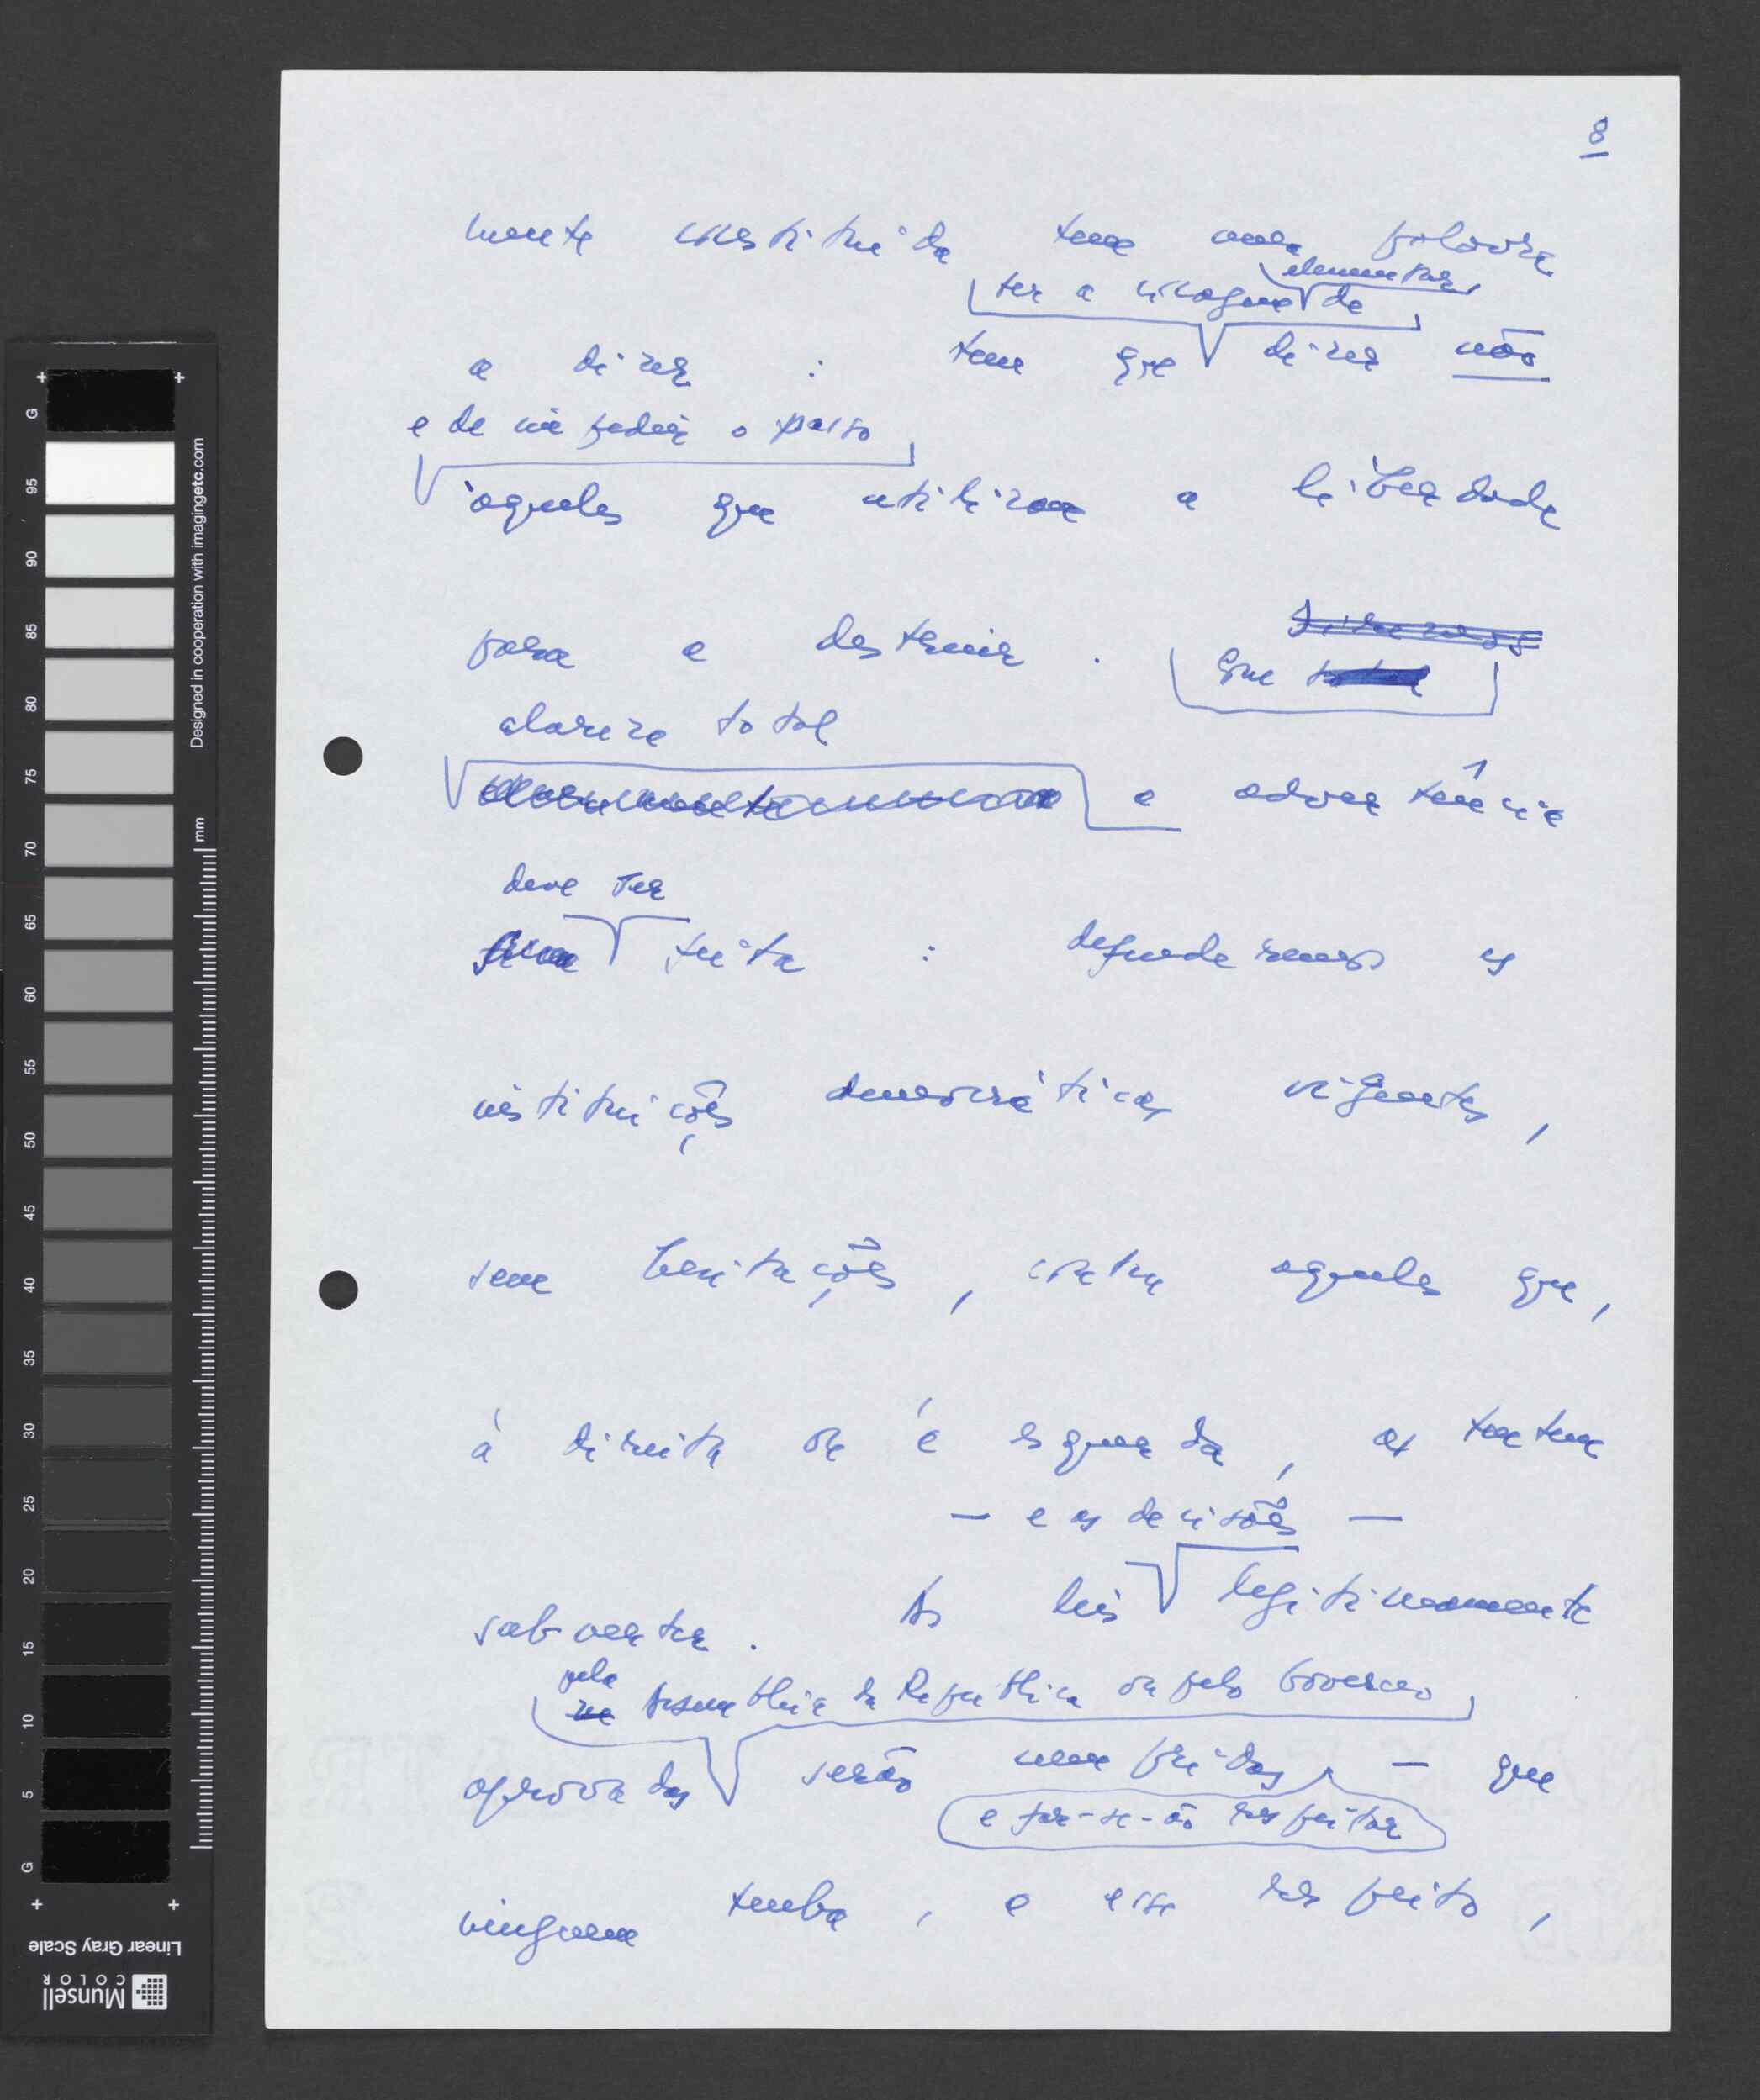 8
mente constituída tem uma palavra
elementar
ter a coragem de
a dizer : tem que dizer não
e de impedir o passo
àqueles que utilizam a liberdade
para a destruir .
Com
clareza total
a advertência
deve ser
feita : defenderemos as
instituições democráticas vigentes ,
sem hesitações , contra aqueles que ,
à direita ou à esquerda , as tentem
— e as decisões —
subverter . As leis legitimamente
pela
na Assembleia da República ou pelo Governo
aprovadas serão cumpridas — que
e far-se-ão respeitar
ninguém tenha , a esse respeito ,
Designed in cooperation with imagingetc.com
mm
G 95 90 85 80 75 70 65 60 55 50 45 40 35 30 25 20 15 10 5 G
Linear Gray Scale
Munsell
COLOR